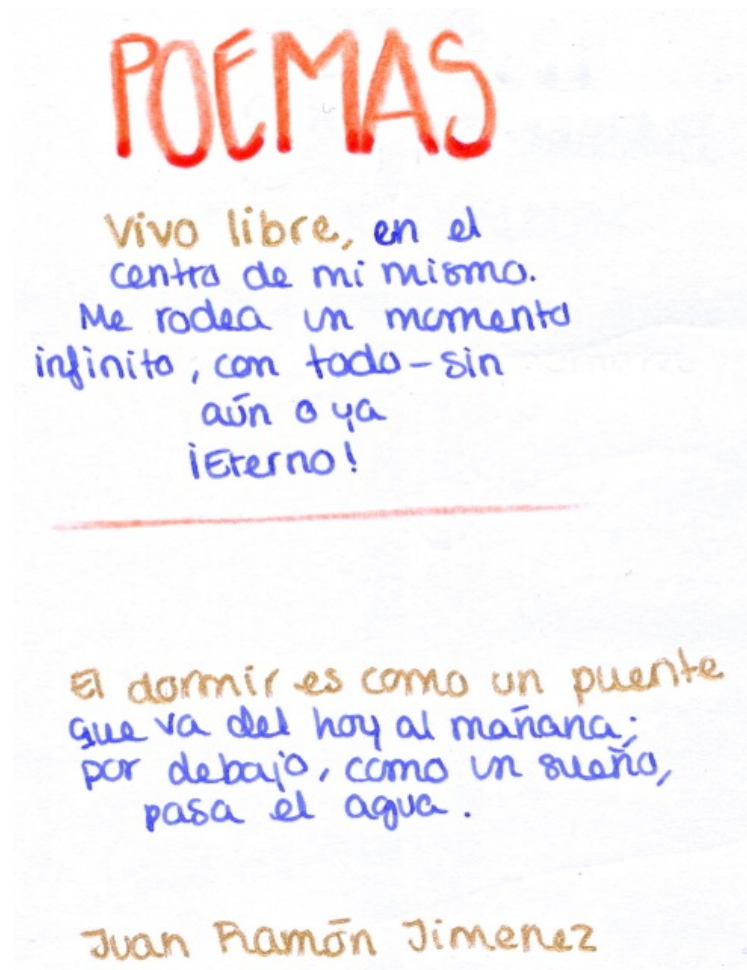 POEMAS
Vivo libre, en el
centro de mi mismo.
Me rodea un momento
infinito, con todo-sin
aún o ya
¡Eterno!
El dormir es como un puente
que va del hoy al mañana;
por debajo, como un sueño,
pasa el agua.
Juan Ramón Jimenez